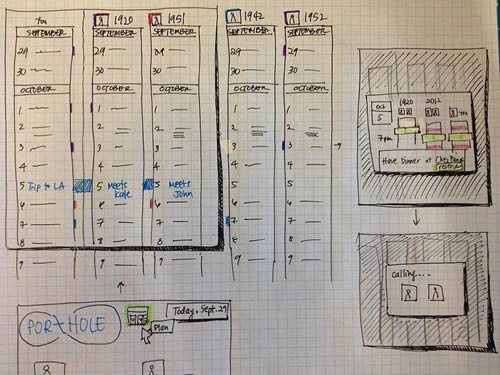 You
SEPTEMBER
29
30
OCTOBER
1
2
3
4
5 Trip to LA
6
7
8
9
1920
SEPTEMBER
29
30
OCTOBER
1
2
3
4
5 Meets
Kate
6
7
8
9
1951
SEPTEMBER
29
30
OCTOBER
1
2
3
4
5 Meets
John
6
7
8
9
1942
SEPTEMBER
29
30
OCTOBER
1
2
3
4
5
6
7
8
9
1952
SEPTEMBER
29
30
OCTOBER
1
2
3
4
5
6
7
8
9
Oct
5
1920
2012
You
7pm
Have Dinner at
calling....
PORTHOLE
Plan
Today, Sept. 29